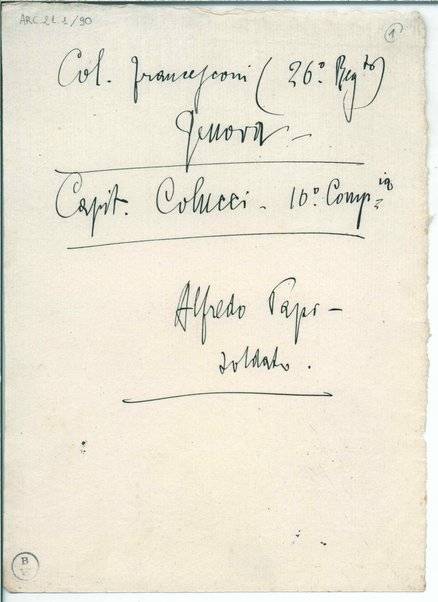 ARC 21. 1/90
1
Col. Francesconi (26.° Reg.to)
Genova -
Capit. Colucci - 10.° Comp.ia
Alfredo Papi -
soldato.
B